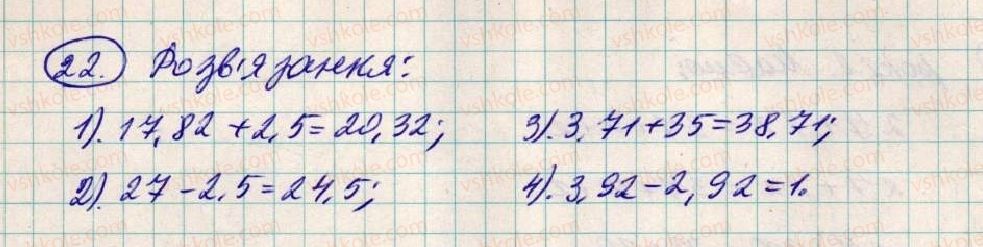 22. Розв'язання:
1). 17,82 + 2,5 = 20,32; 3). 3,71 + 35 = 38,71;
2). 27 - 2,5 = 24,5; 4). 3,92 - 2,92 = 1.
vshkole.com